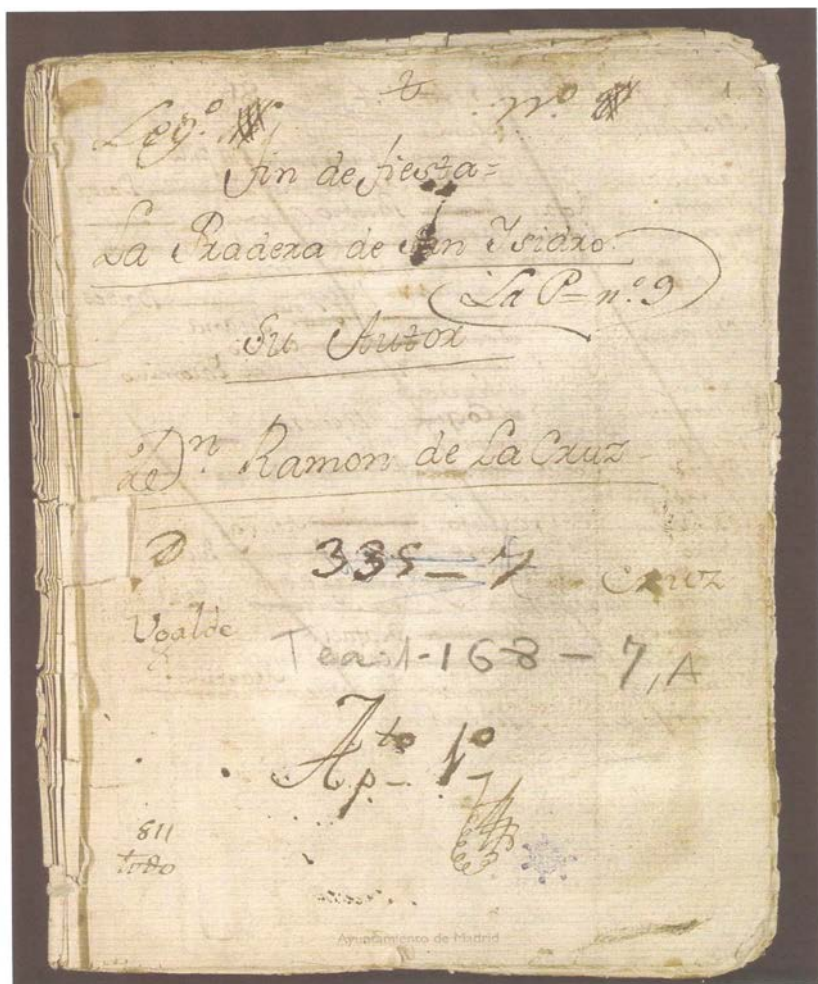 1
Leg.º n.º
Fin de fiesta=
La Pradera de San Isidro.
La P= n.º 9
Su Autor
de Dn Ramon de La Cruz
335-7 Cruz
Ugalde
Tea 1-168-7, A
Apto 1º
811
todo
Ayuntamiento de Madrid